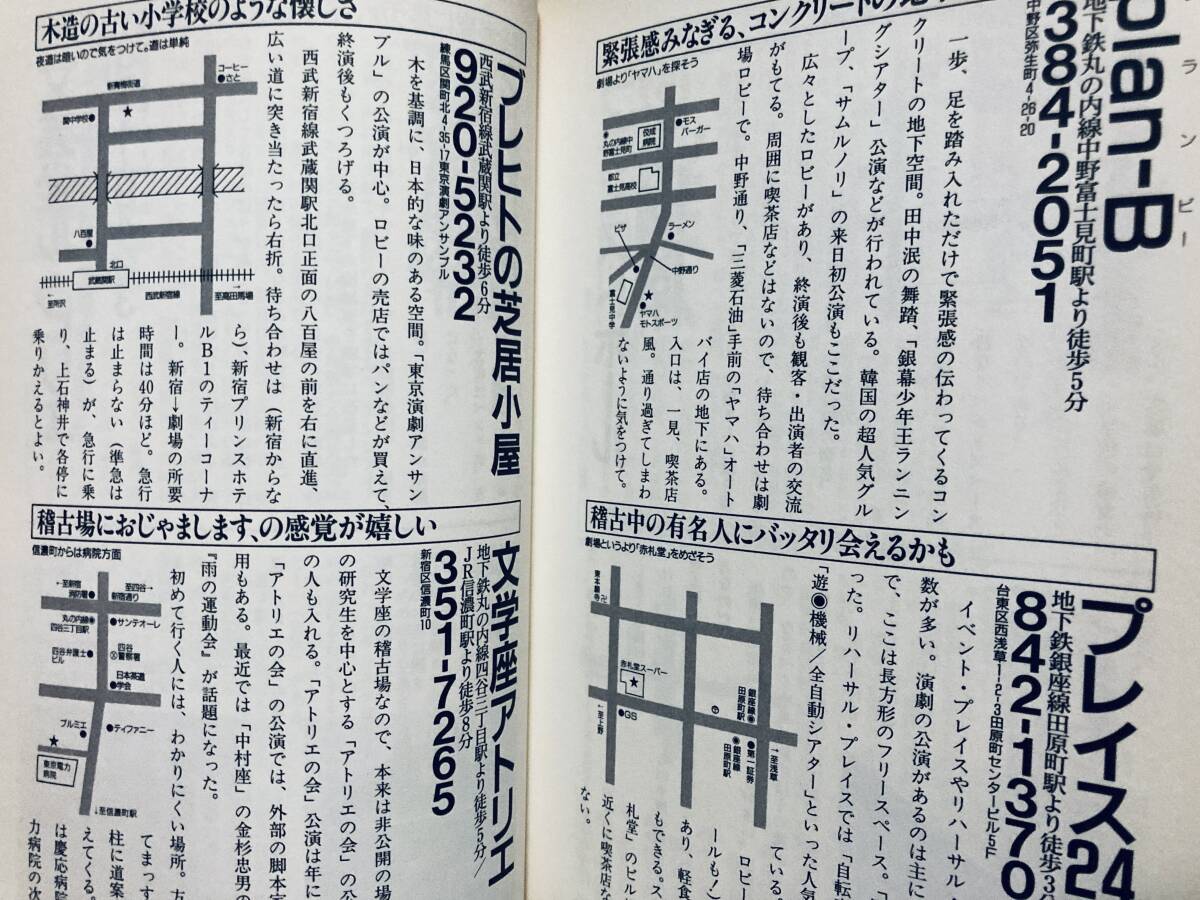 緊張感みなぎる、コンクリートの地
plan-B
プランビー
地下鉄丸の内線中野富士見町駅より徒歩5分
384-2051
中野区弥生町4-26-20
一歩、足を踏み入れただけで緊張感の伝わってくるコン
クリートの地下空間。田中泯の舞踏、「銀幕少年王ランニン
グシアター」公演などが行われている。韓国の超人気グル
ープ、「サムルノリ」の来日初公演もここだった。
広々としたロビーがあり、終演後も観客・出演者の交流
がもてる。周囲に喫茶店などはないので、待ち合わせは劇
場ロビーで。中野通り、「三菱石油」手前の「ヤマハ」オート
バイ店の地下にある。
入口は、一見、喫茶店
風。通り過ぎてしまわ
ないように気をつけて。
劇場より「ヤマハ」を探そう
モスバーガー
佼成病院
丸の内線中野富士見町
都立富士見高校
ラーメン
ピザ
中野通り
富士見中学
ヤマハモトスポーツ
稽古中の有名人にバッタリ会えるかも
プレイス24
地下鉄銀座線田原町駅より徒歩3分
842-1370
台東区西浅草1-2-3田原町センタービル5F
イベント・プレイスやリハーサル・
数が多い。演劇の公演があるのは主に
で、ここは長方形のフリースペース。「
った。リハーサル・プレイスでは「自転
「遊◉機械／全自動シアター」といった人気
ている。
ロビー
ールも!)
あり、軽食
もできる。ス
札堂」のビル
近くに喫茶店な
ない。
劇場というより「赤札堂」をめざそう
東本願寺卍
赤札堂スーパー
GS
銀座線田原町駅
第一証券
銀座線田原町駅
→至浅草
←至上野
木造の古い小学校のような懐しさ
ブレヒトの芝居小屋
西武新宿線武蔵関駅より徒歩6分
920-5232
練馬区関町北4-35-17東京演劇アンサンブル
木を基調に、日本的な味のある空間。「東京演劇アンサン
ブル」の公演が中心。ロビーの売店ではパンなどが買えて、
終演後もくつろげる。
西武新宿線武蔵関駅北口正面の八百屋の前を右に直進、
広い道に突き当たったら右折。待ち合わせは(新宿からな
ら)、新宿プリンスホテ
ルB1のティーコーナ
ー。新宿→劇場の所要
時間は40分ほど。急行
は止まらない(準急は
止まる)が、急行に乗
り、上石神井で各停に
乗りかえるとよい。
夜道は暗いので気をつけて。道は単純
コーヒーさと
新青梅街道
関中学校
八百屋
北口
武蔵関駅
←至所沢
西武新宿線
→至高田馬場
稽古場におじゃまします、の感覚が嬉しい
文学座アトリエ
地下鉄丸の内線四谷三丁目駅より徒歩5分／
JR信濃町駅より徒歩8分
351-7265
新宿区信濃町10
文学座の稽古場なので、本来は非公開の場
の研究生を中心とする「アトリエの会」の公
の人も入れる。「アトリエの会」公演は年に
「アトリエの会」の公演では、外部の脚本家
用もある。最近では「中村座」の金杉忠男の
『雨の運動会』が話題になった。
初めて行く人には、わかりにくい場所。方
てまっす
柱に道案
えてくる。
は慶応病院
力病院の次
信濃町からは病院方面
←至新宿
消防署
至四谷→
新宿通り
丸の内線四谷三丁目駅
サンテオーレ
四谷弁護士ビル
四谷警察署
日本茶道学会
ブルミエ
ティファニー
東京電力病院
↓至信濃町駅